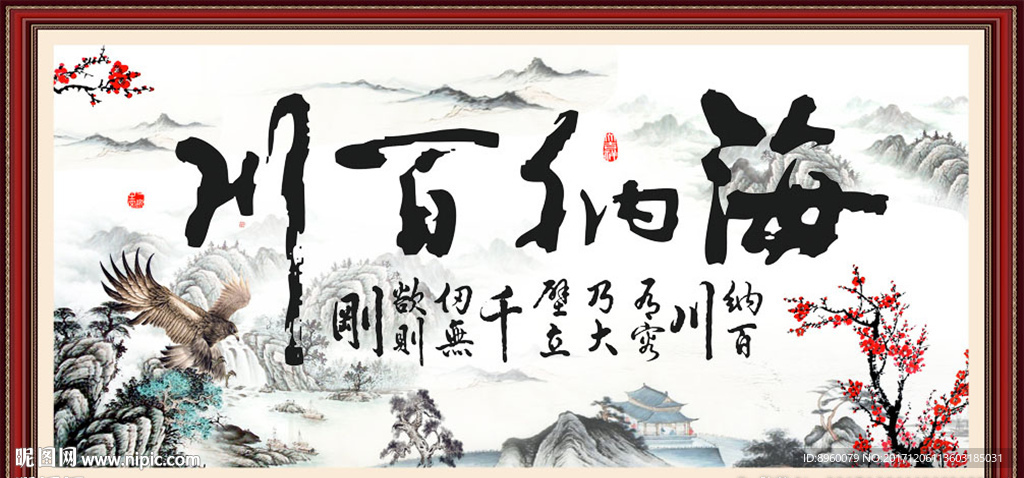 海納百川
納百
川
有容
乃大
壁立
千
仞無
欲則
剛
昵图网 www.nipic.com
ID:8960079 NO:20171206113603185031